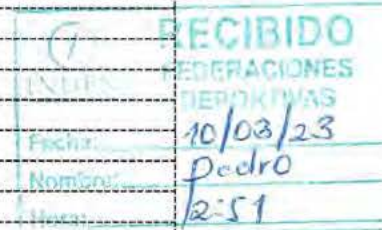 RECIBIDO
FEDERACIONES
DEPORTIVAS
Fecha: 10/03/23
Nombre: Pedro
Hora: 2:51